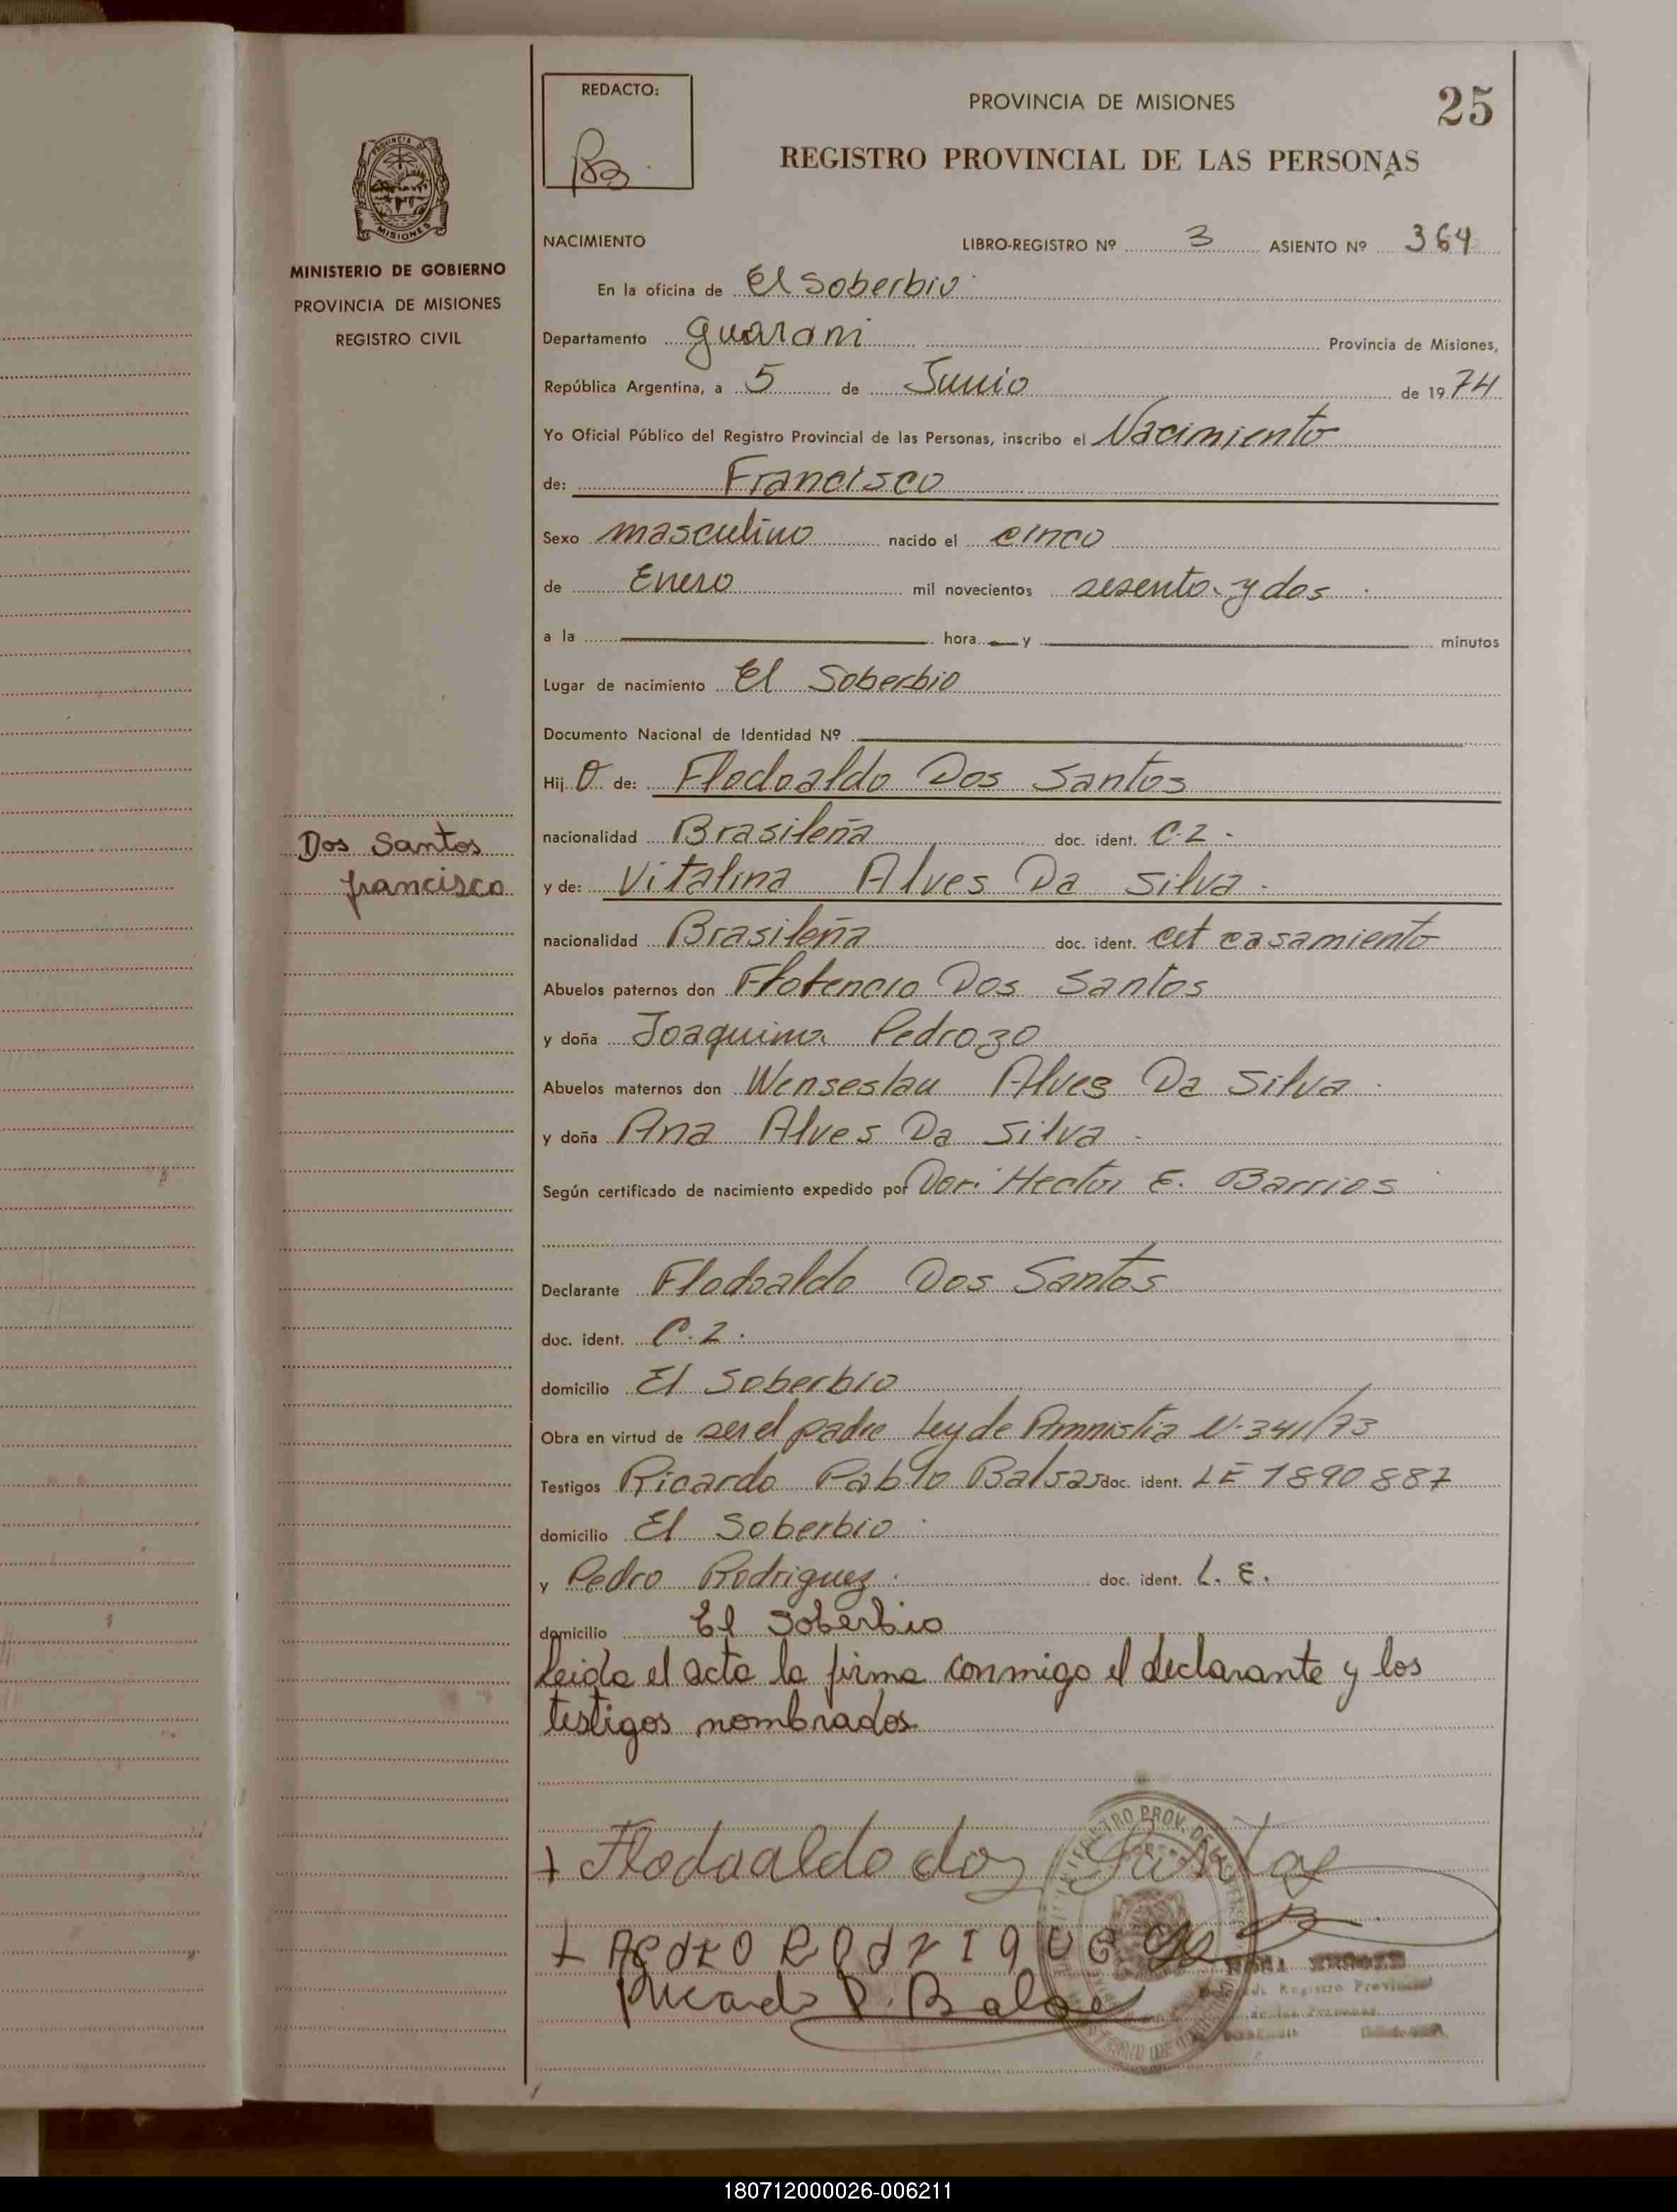 REDACTO:
PROVINCIA DE MISIONES
25
REGISTRO PROVINCIAL DE LAS PERSONAS
PROVINCIA DE
MISIONES
MINISTERIO DE GOBIERNO
PROVINCIA DE MISIONES
REGISTRO CIVIL
NACIMIENTO LIBRO-REGISTRO Nº 3 ASIENTO Nº 364
En la oficina de El Soberbio
Departamento guarani Provincia de Misiones,
República Argentina, a 5 de Junio de 1974
Yo Oficial Público del Registro Provincial de las Personas, inscribo el Nacimiento
de: Francisco
Sexo masculino nacido el cinco
de Enero mil novecientos sesenta y dos
a la hora y minutos
Lugar de nacimiento El Soberbio
Documento Nacional de Identidad Nº
Hijo de: Flodoaldo Dos Santos
Dos Santos
francisco
nacionalidad Brasileña doc. ident. C.2.
y de: Vitalina Alves Da Silva.
nacionalidad Brasileña doc. ident. cet casamiento
Abuelos paternos don Florencio Dos Santos
y doña Joaquima Pedrozo
Abuelos maternos don Wenseslau Alves Da Silva
y doña Ana Alves Da Silva
Según certificado de nacimiento expedido por Hector E. Barrios
Declarante Flodoaldo Dos Santos
doc. ident. C.2.
domicilio El Soberbio
Obra en virtud de ser el padre Ley de Amnistia N.341/73
Testigos Ricardo Pablo Balsas doc. ident. LE 1890887
domicilio El Soberbio
y Pedro Rodriguez doc. ident. L.E.
domicilio El Soberbio
Leida el acta la firma conmigo el declarante y los
testigos nombrados
+ Flodoaldo dos Santos
+ Pedro Rodrigues
Ricardo P. Balsa
Registro Provincial
de las Personas
180712000026-006211